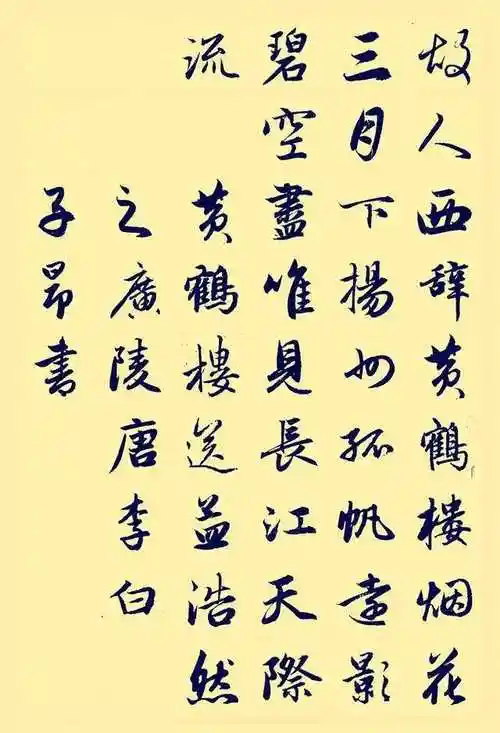 故人西辞黄鹤樓烟花
三月下揚州孤帆遠影
碧空盡唯見長江天際
流
黄鶴樓送孟浩然
之廣陵唐李白
子昂書